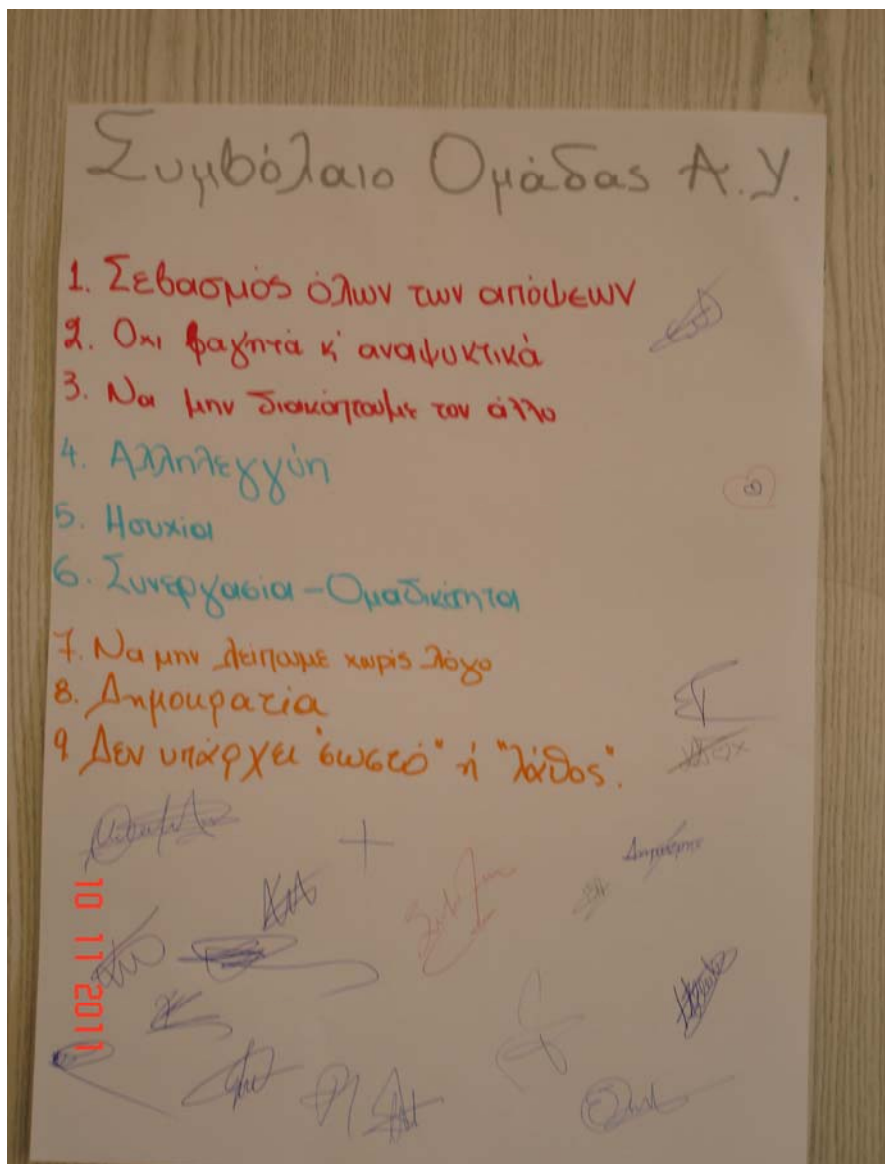 Συμβόλαιο Ομάδας Α.Υ.
1. Σεβασμός όλων των απόψεων
2. Οχι φαγητά κ' αναψυκτικά
3. Να μην διακόπτουμε τον άλλο
4. Αλληλεγγύη
5. Ησυχία
6. Συνεργασία - Ομαδικότητα
7. Να μην λείπουμε χωρίς λόγο
8. Δημοκρατία
9 Δεν υπάρχει "σωστό" ή "λάθος".
10 11 2011